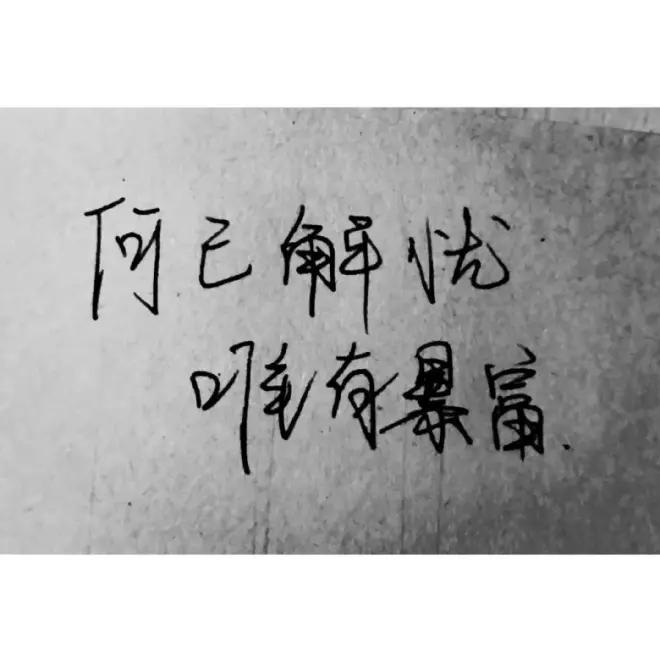 何已解忧
唯有暴富.